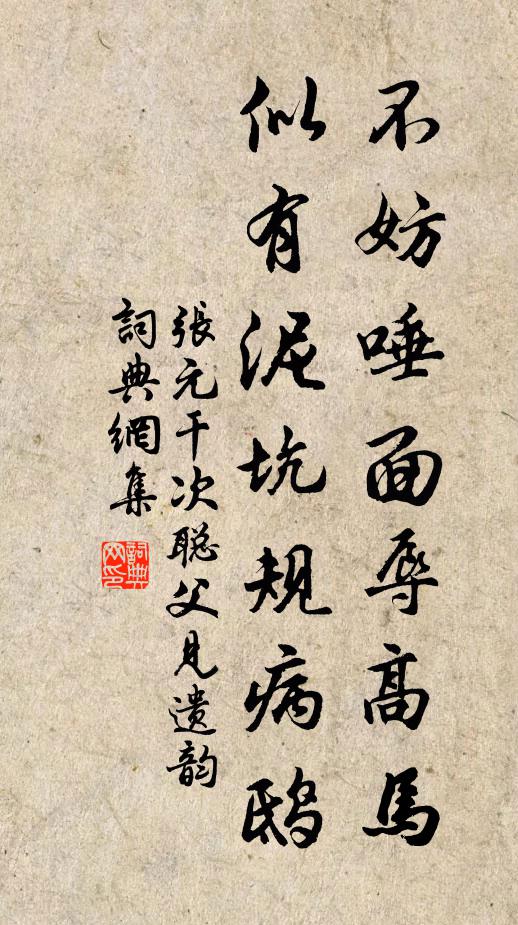 不妨唾面辱高馬
似有泥坑規病鴟
張元干次聡父見遺韵
詞典網集
詞典网印